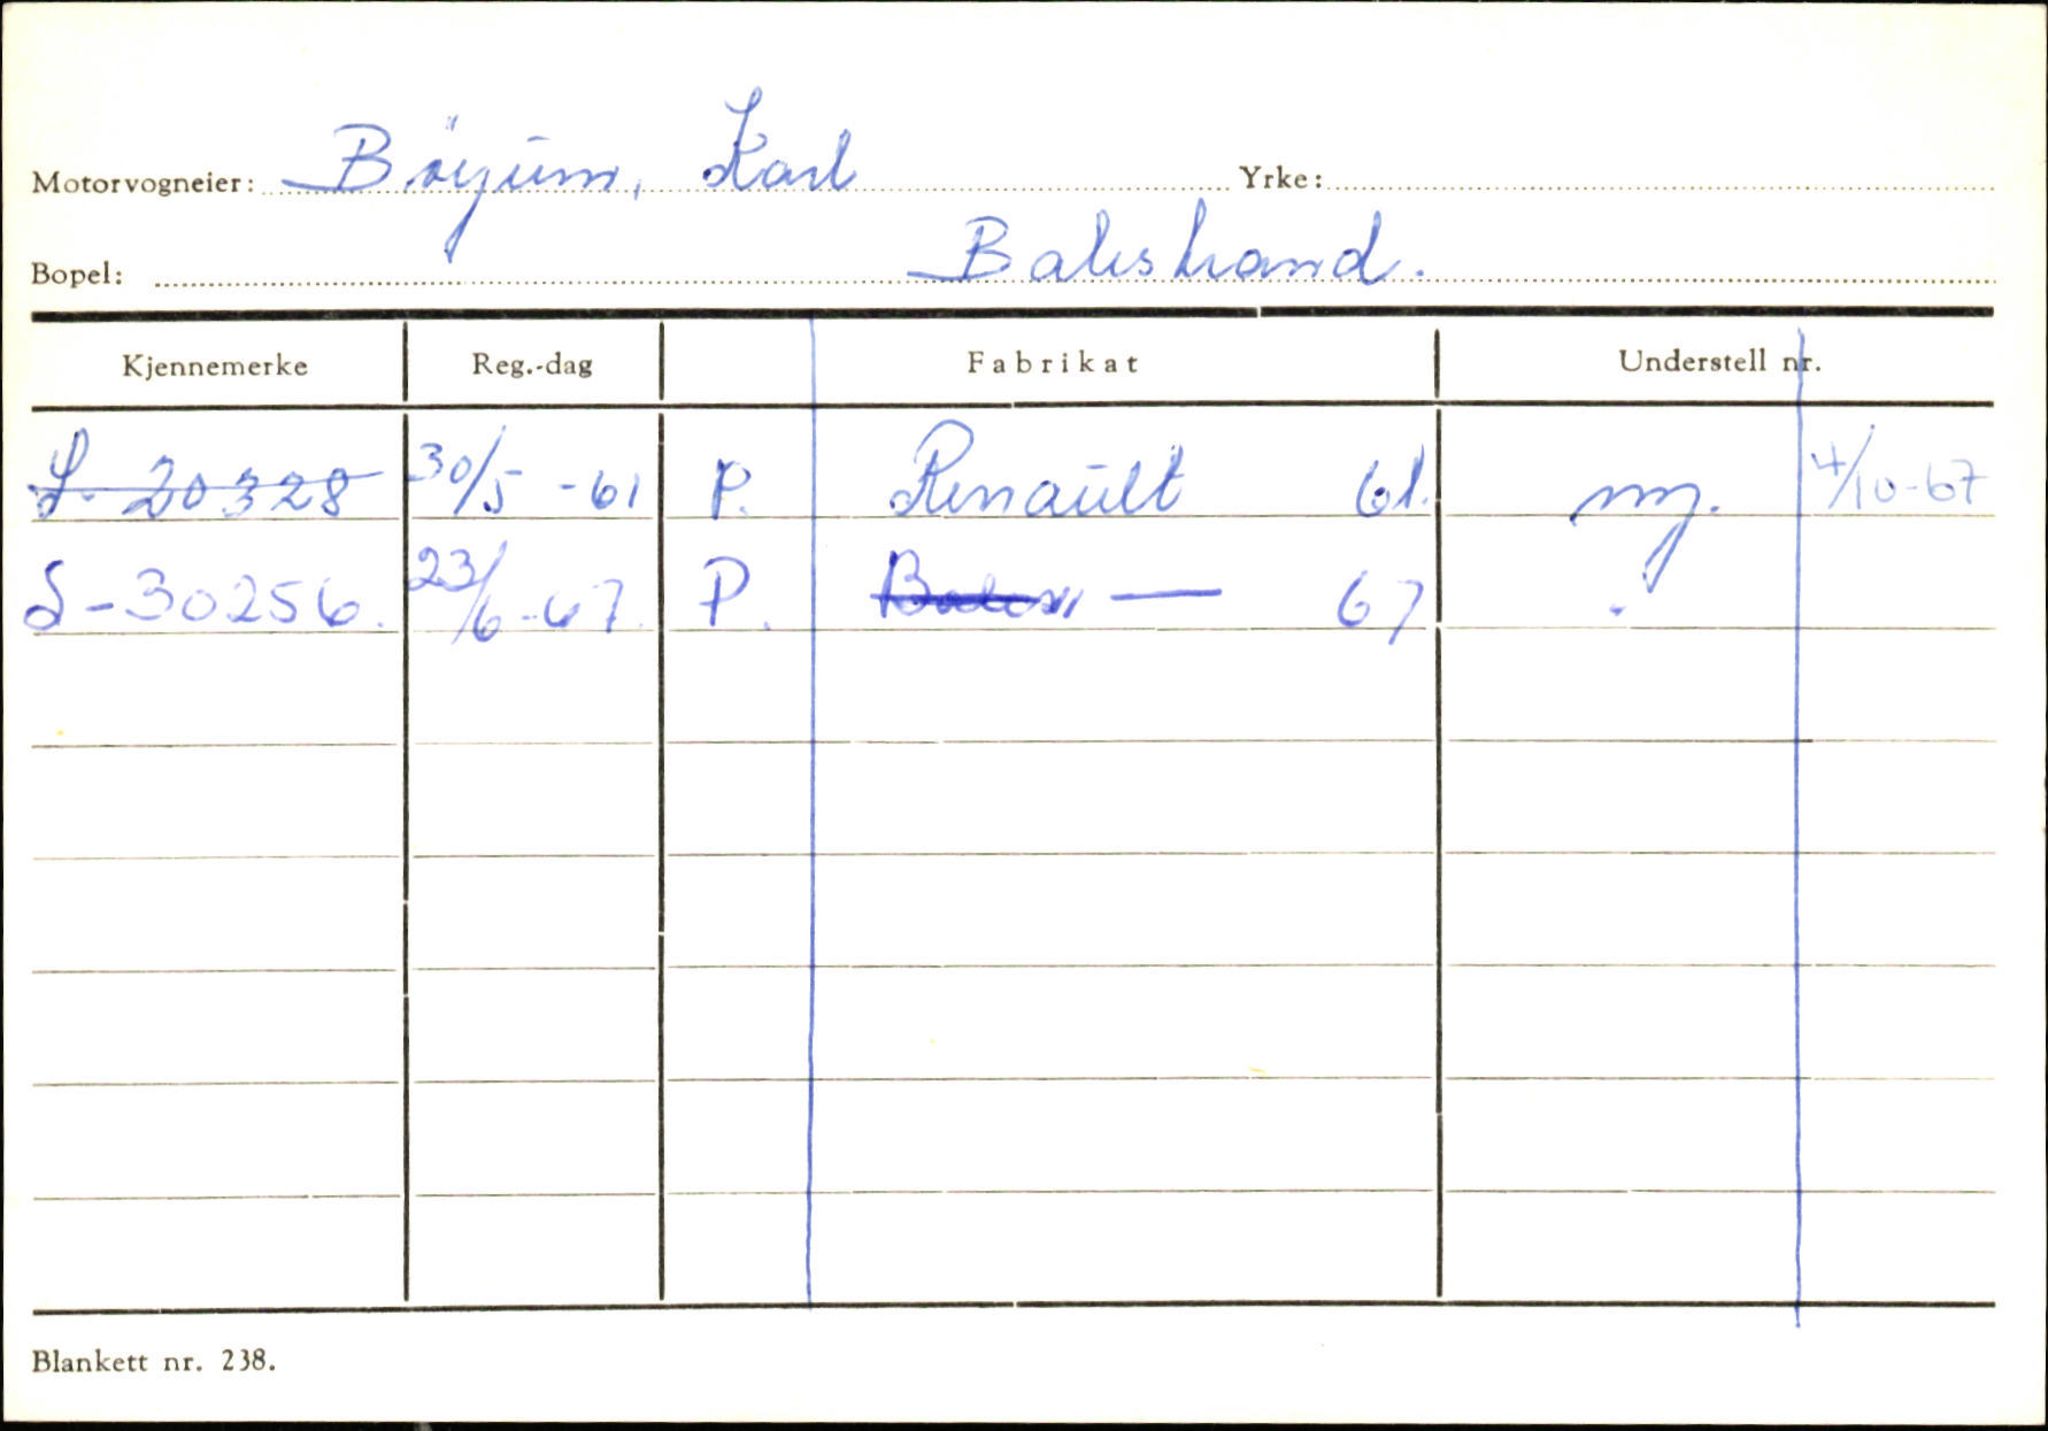 Motorvogneier: Böyum, Karl Yrke:
Bopel: Balestrand.
Kjennemerke Reg.-dag Fabrikat Understell nr.
S- 20328 30/5 -61 P. Renault 61. ny. 4/10-67
S-30256. 23/6-67. P. — 67
Blankett nr. 238.